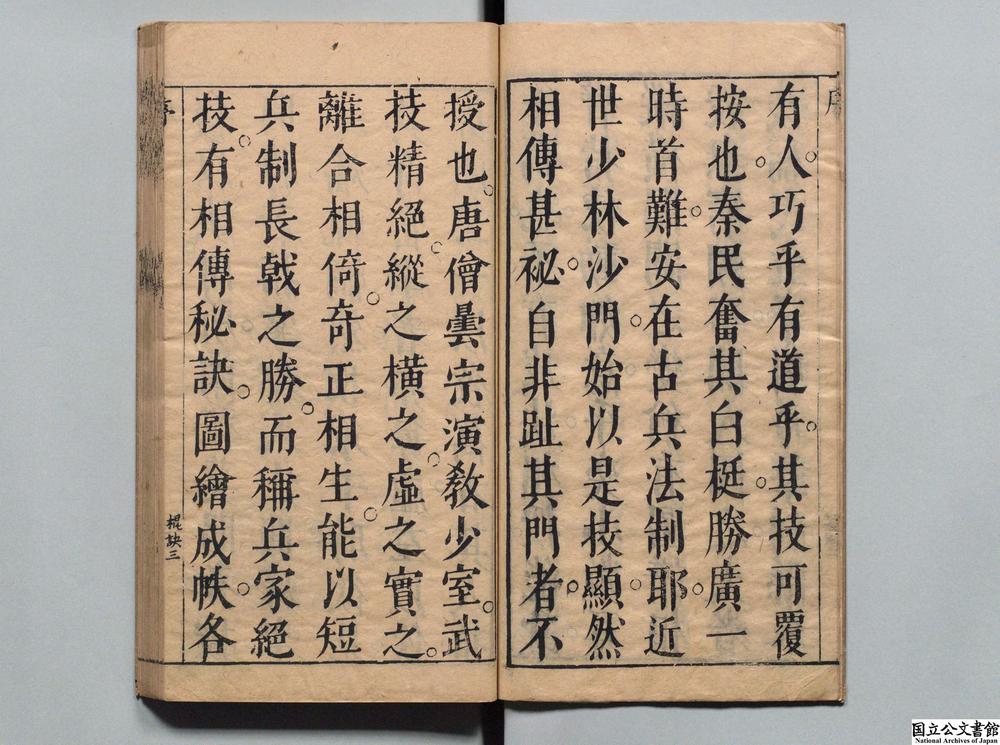 序
有人巧乎有道乎其技可覆
按也秦民奮其白梃勝廣一
時首難安在古兵法制耶近
世少林沙門始以是技顯然
相傳甚祕自非趾其門者不
授也唐僧曇宗演教少室武
技精絕縱之橫之虛之實之
離合相倚奇正相生能以短
兵制長戟之勝而稱兵家絕
技有相傳秘訣圖繪成帙各
序
棍訣三
国立公文書館
National Archives of Japan